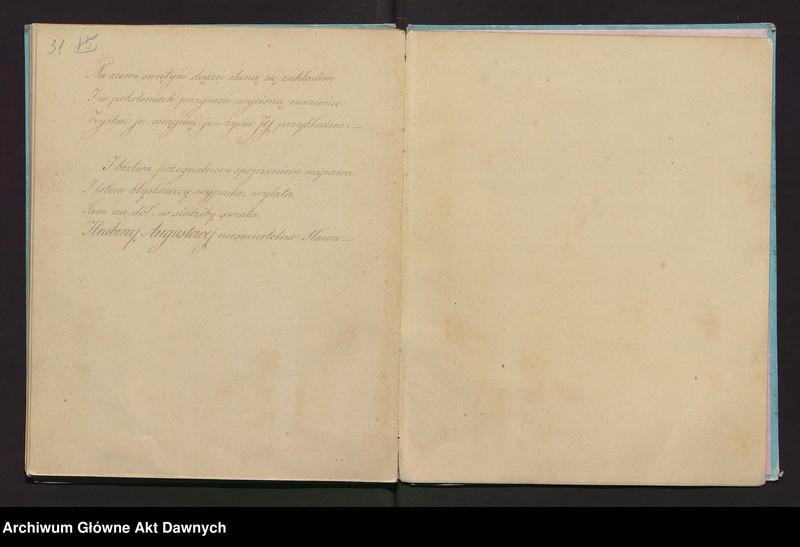 31 15
Na ziemi świętym dążeń staną się zakładem
I w pokoleniach pragnień wycisną znamiona
Zyskać je, osiągnąć je – życia Jej przykładem. –
I bóztwa pożegnalnem spojrzeniem napawa
I lotem błyskawicy wypada, wylata,
Tam na dół, w siedziby świata,
Hrabiny Augustowej nieśmiertelna Sława. –
Archiwum Główne Akt Dawnych